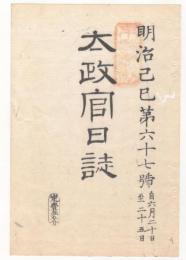 明治己巳第六十七號
自六月二十日
至二十五日
太政官日誌